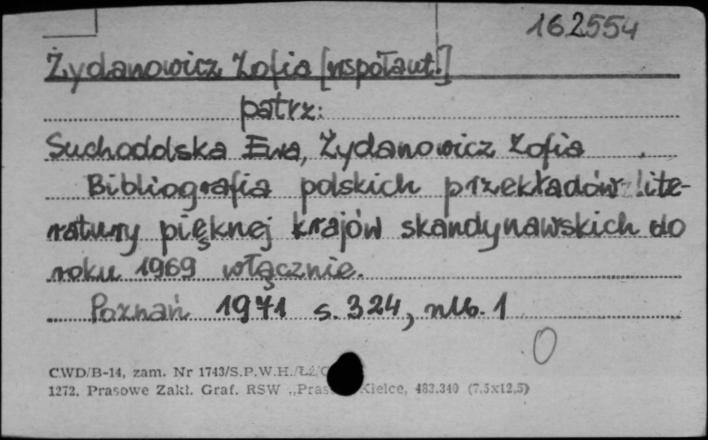 162554
Żydanowicz Zofia [współaut.]
patrz:
Suchodolska Ewa, Żydanowicz Zofia
Bibliografia polskich przekładów lite-
ratury pięknej krajów skandynawskich do
roku 1969 włącznie.
Poznań 1971 s. 324, nlb. 1
0
CWD/B-14, zam. Nr 1743/S.P.W.H.
1272. Prasowe Zakł. Graf. RSW „Pras Kielce, 483.340 (7,5x12,5)